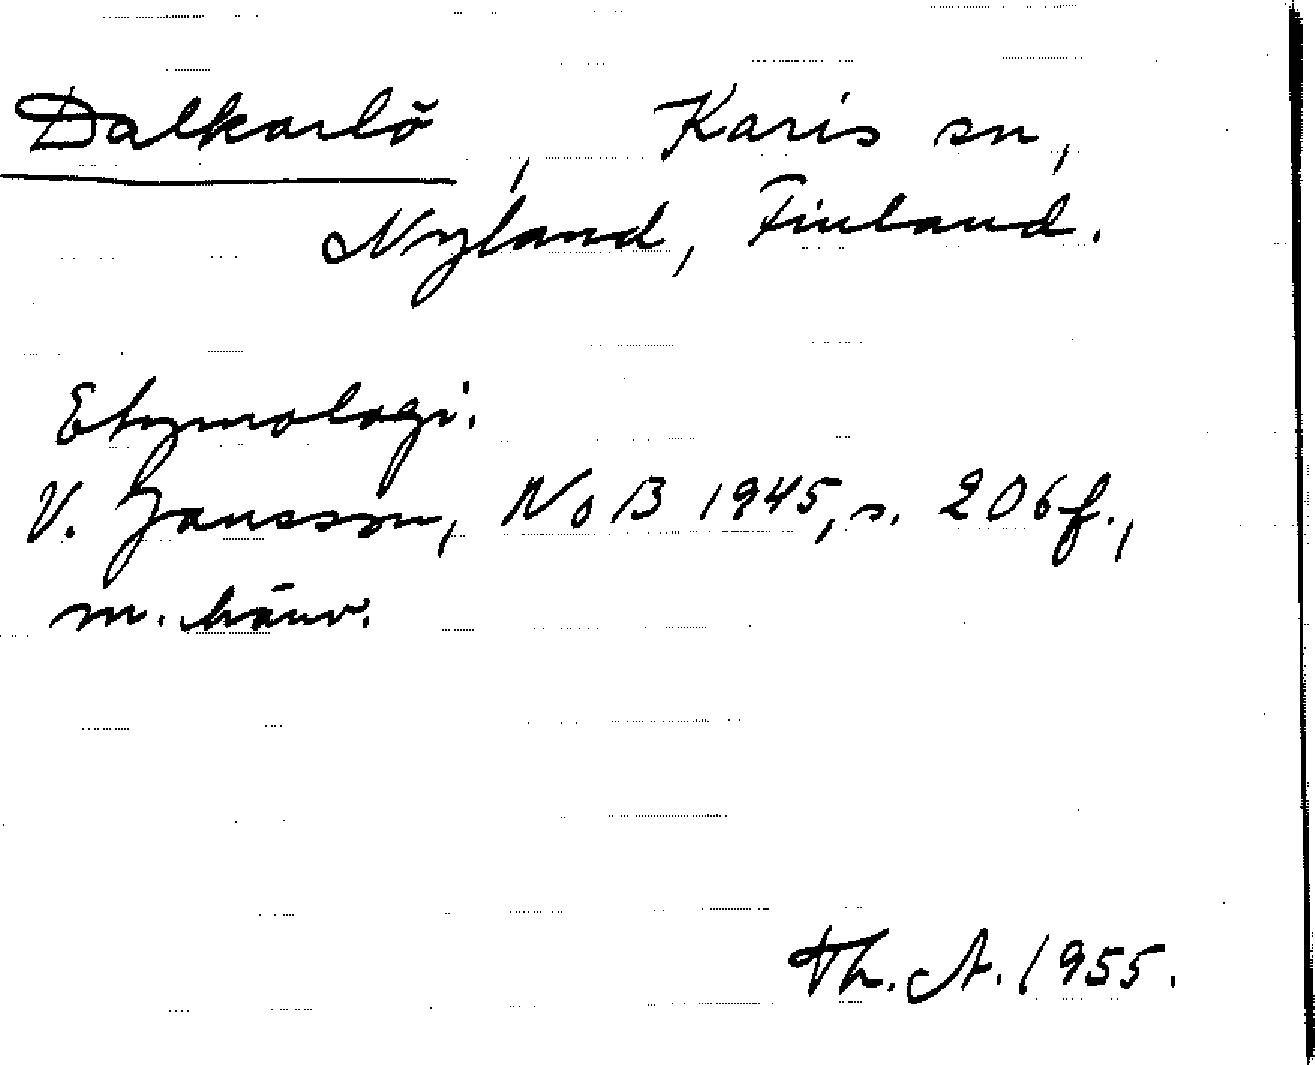 Dalkarlö, Karis sn,
Nyland, Finland.
Etymologi.
V. Jansson, NoB 1945, s. 206 f.,
m. hänv.
Th. A. 1955.